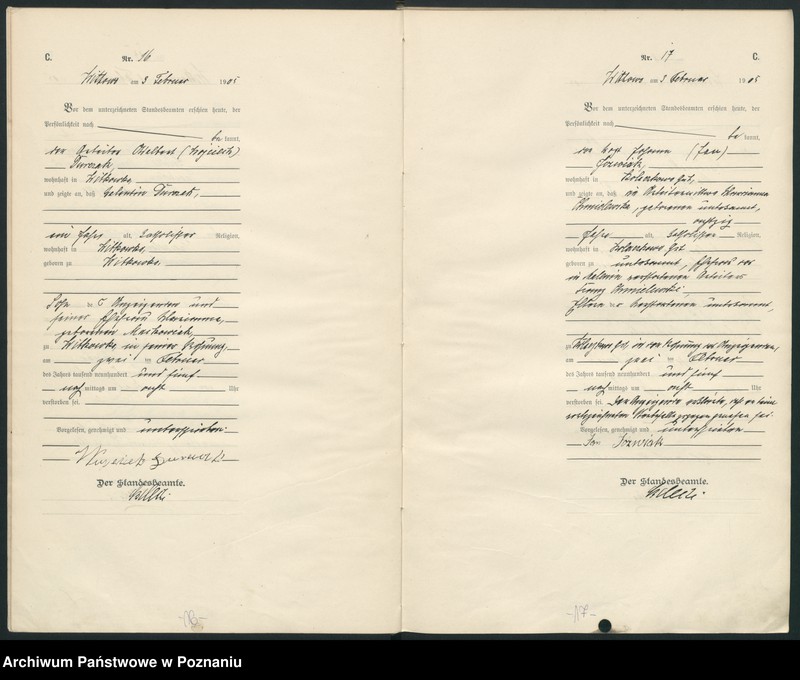 C.
Nr. 16
Witkowo am 3 Februar 1905
Vor dem unterzeichneten Standesbeamten erschien heute, der
Persönlichkeit nach
be kannt,
der Arbeiter Adalbert (Wojciech)
Turczak,
wohnhaft in Witkowko
und zeigte an, daß Valentin Turczak,
ein Jahr alt, katholischer Religion,
wohnhaft in Witkowko
geboren zu Witkowko
Sohn des Anzeigenden und
seiner Ehefrau Marianna,
geborenen
zu Witkowko, in seiner Wohnung,
am zwei ten Februar
des Jahres tausend neunhundert und fünf
nach mittags um acht Uhr
verstorben sei.
Vorgelesen, genehmigt und unterschrieben
Wojciech Turczak
Der Standesbeamte.
-16-
Nr. 17
C.
Witkowo am 3 Februar 1905
Vor dem unterzeichneten Standesbeamten erschien heute, der
Persönlichkeit nach
be kannt,
der Vogt Johann (Jan)
Jozwiak,
wohnhaft in
und zeigte an, daß die Arbeiterwittwe Marianna
Chmielewska, geborene unbekannt,
achtzig
Jahre alt, katholischer Religion,
wohnhaft in
geboren zu unbekannt, Ehefrau des
in verstorbenen Arbeiters
Franz Chmielewski,
Eltern der Verstorbenen unbekannt,
zu in der Wohnung des Anzeigenden,
am zwei ten Februar
des Jahres tausend neunhundert und fünf
nach mittags um acht Uhr
verstorben sei. Der Anzeigende erklärte, daß er beim
Sterbefalle zugegen gewesen sei.
Vorgelesen, genehmigt und unterschrieben
Jan Jozwiak
Der Standesbeamte.
-17-
Archiwum Państwowe w Poznaniu